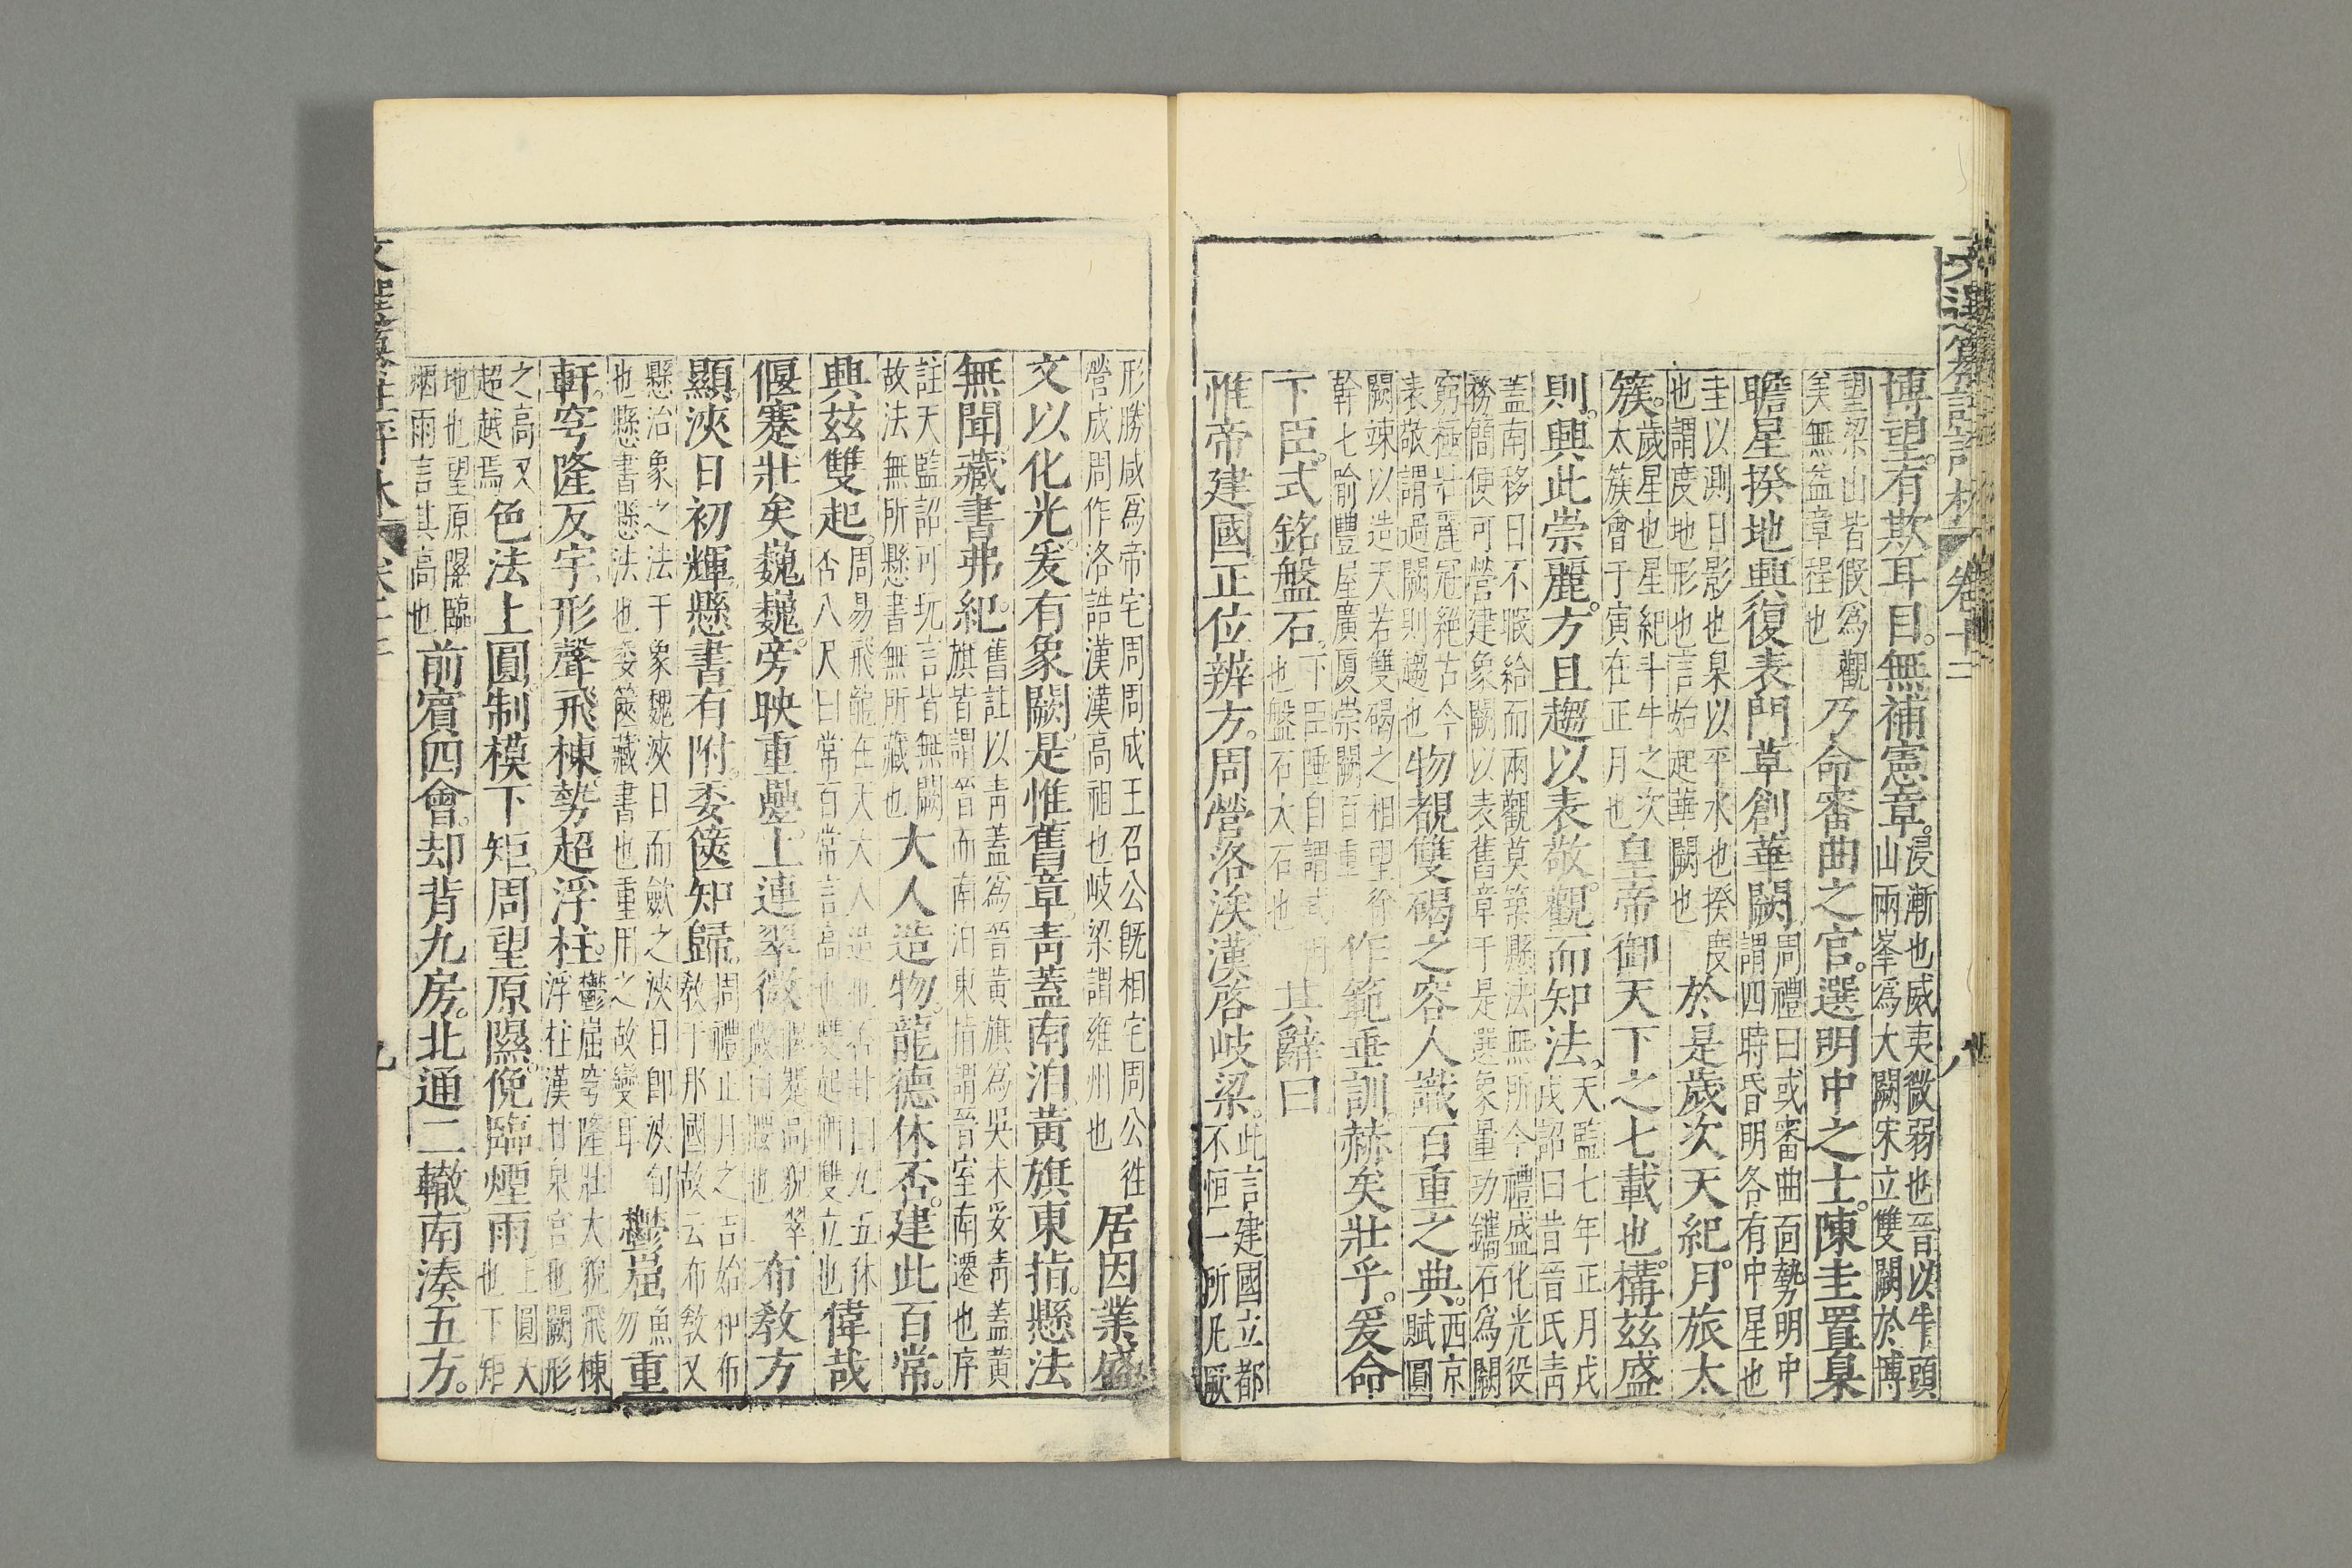 文選纂註評林 卷十二 八
博望。有欺耳目。無補憲章。浸漸也威夷微弱也晉以牛頭
山兩峯為大闕宋立雙闕於博
望梁山皆假為觀
美無益章程也
乃命審曲之官。選明中之士。陳圭置臬
瞻星揆地興復表門草創華闕
周禮曰或審曲面勢明中
謂四時昏明各有中星也
圭以測日影也臬以平水也揆度
也謂度地形也言始起華闕也
於是歲次天紀。月旅太
簇。歲星也星紀斗牛之次
太簇會于寅在正月也
皇帝御天下之七載也。構茲盛
則。興此崇麗。方且趨以表敬。觀而知法。天監七年正月戊
戌詔曰昔晉氏青
蓋南移日不暇給而兩觀莫築懸法無所今禮盛化光役
務簡便可營建象闕以表舊章于是選象量功鐫石為闕
窮極壯麗冠絕古今
表敬謂過闕則趨也
物覩雙碣之容人識百重之典。西京
賦圓
闕竦以造天若雙碣之相望徐
幹七喻豐屋廣厦崇闕百重
作範垂訓。赫矣壯乎。爰命
下臣。式銘盤石。下臣陲自謂
也盤石大石也
其辭曰
惟帝建國正位辨方。周營洛涘漢啓岐梁。此言建國立都
不恒一所凡厥
形勝咸為帝宅周周成王召公既相宅周公徃
營成周作洛誥漢漢高祖也岐梁謂雍州也
居因業盛
文以化光。爰有象闕。是惟舊章。青蓋南泊黃旗東指。懸法
無聞。藏書弗紀。舊註以青蓋為晉黃旗為吳未妥青蓋黃
旗皆謂晉而南泊東指謂晉室南遷也序
註天監詔可玩言皆無闕
故法無所懸書無所藏也
大人造物。龍德休否。建此百常。
興茲雙起。周易飛龍在天大人造也否卦曰九五休
否八尺曰常百常言高也雙起兩雙立也
偉哉
偃蹇壯矣巍巍。旁映重疊。上連翠微。偃蹇高貌翠
微山腰也
布教方
顯。浹日初輝。懸書有附。委篋知歸。周禮正月之吉始和布
敎于邦國故云布敎又
懸治象之法于象魏浹日而斂之浹日卽浹旬
也懸書懸法也委篋藏書也重用之故變耳
鬱崫魚
勿
重
軒。穹隆反宇。形聳飛棟。勢超浮柱。鬱崫穹隆壯大貌飛棟
浮柱漢甘泉宮也闕形
之高又
超越焉
色法上圓。制模下矩。周望原隰。俛臨煙雨。上圓天
也下矩
地也望原隰臨
烟雨言其高也
前賔四會。却背九房。北通二轍。南湊五方。
九